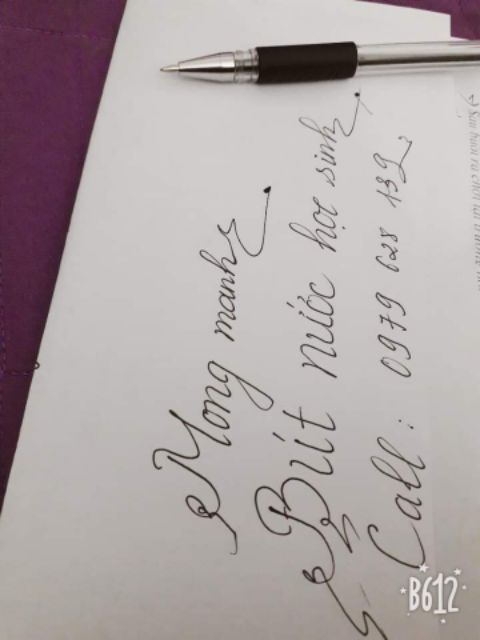 Mong manh
Bút nước học sinh
Call: 0979 628 139
B612